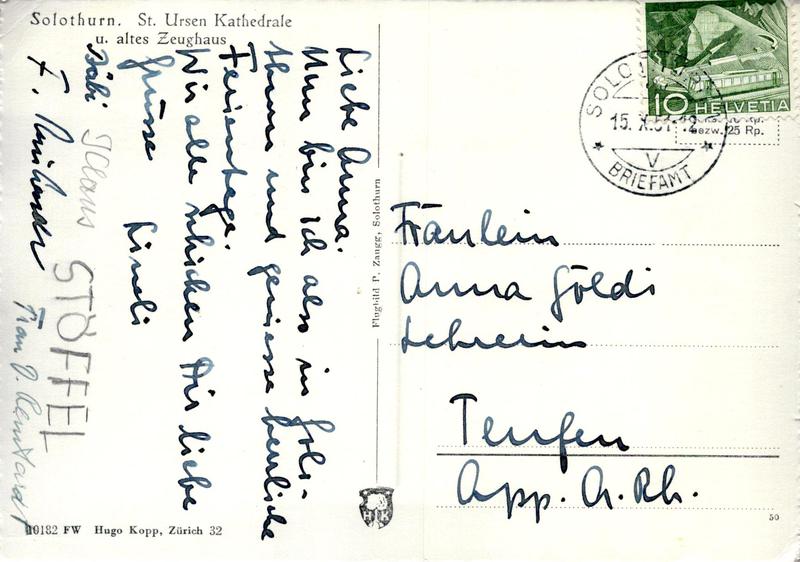 Solothurn. St. Ursen Kathedrale
u. altes Zeughaus
Liebe Anna.
Nun bin ich also in Solo-
thurn und geniesse herrliche
Ferientage.
Wir alle schicken Dir liebe
Grüsse
Bäbi
Klaus
STÖFFEL
Flugbild P. Zaugg, Solothurn
10182 FW Hugo Kopp, Zürich 32
HK
SOLOTHURN
15. X. 51-12
V
BRIEFAMT
10 HELVETIA
bezw. 25 Rp.
Fräulein
Anna Göldi
Lehrerin
Teufen
App. A. Rh.
50